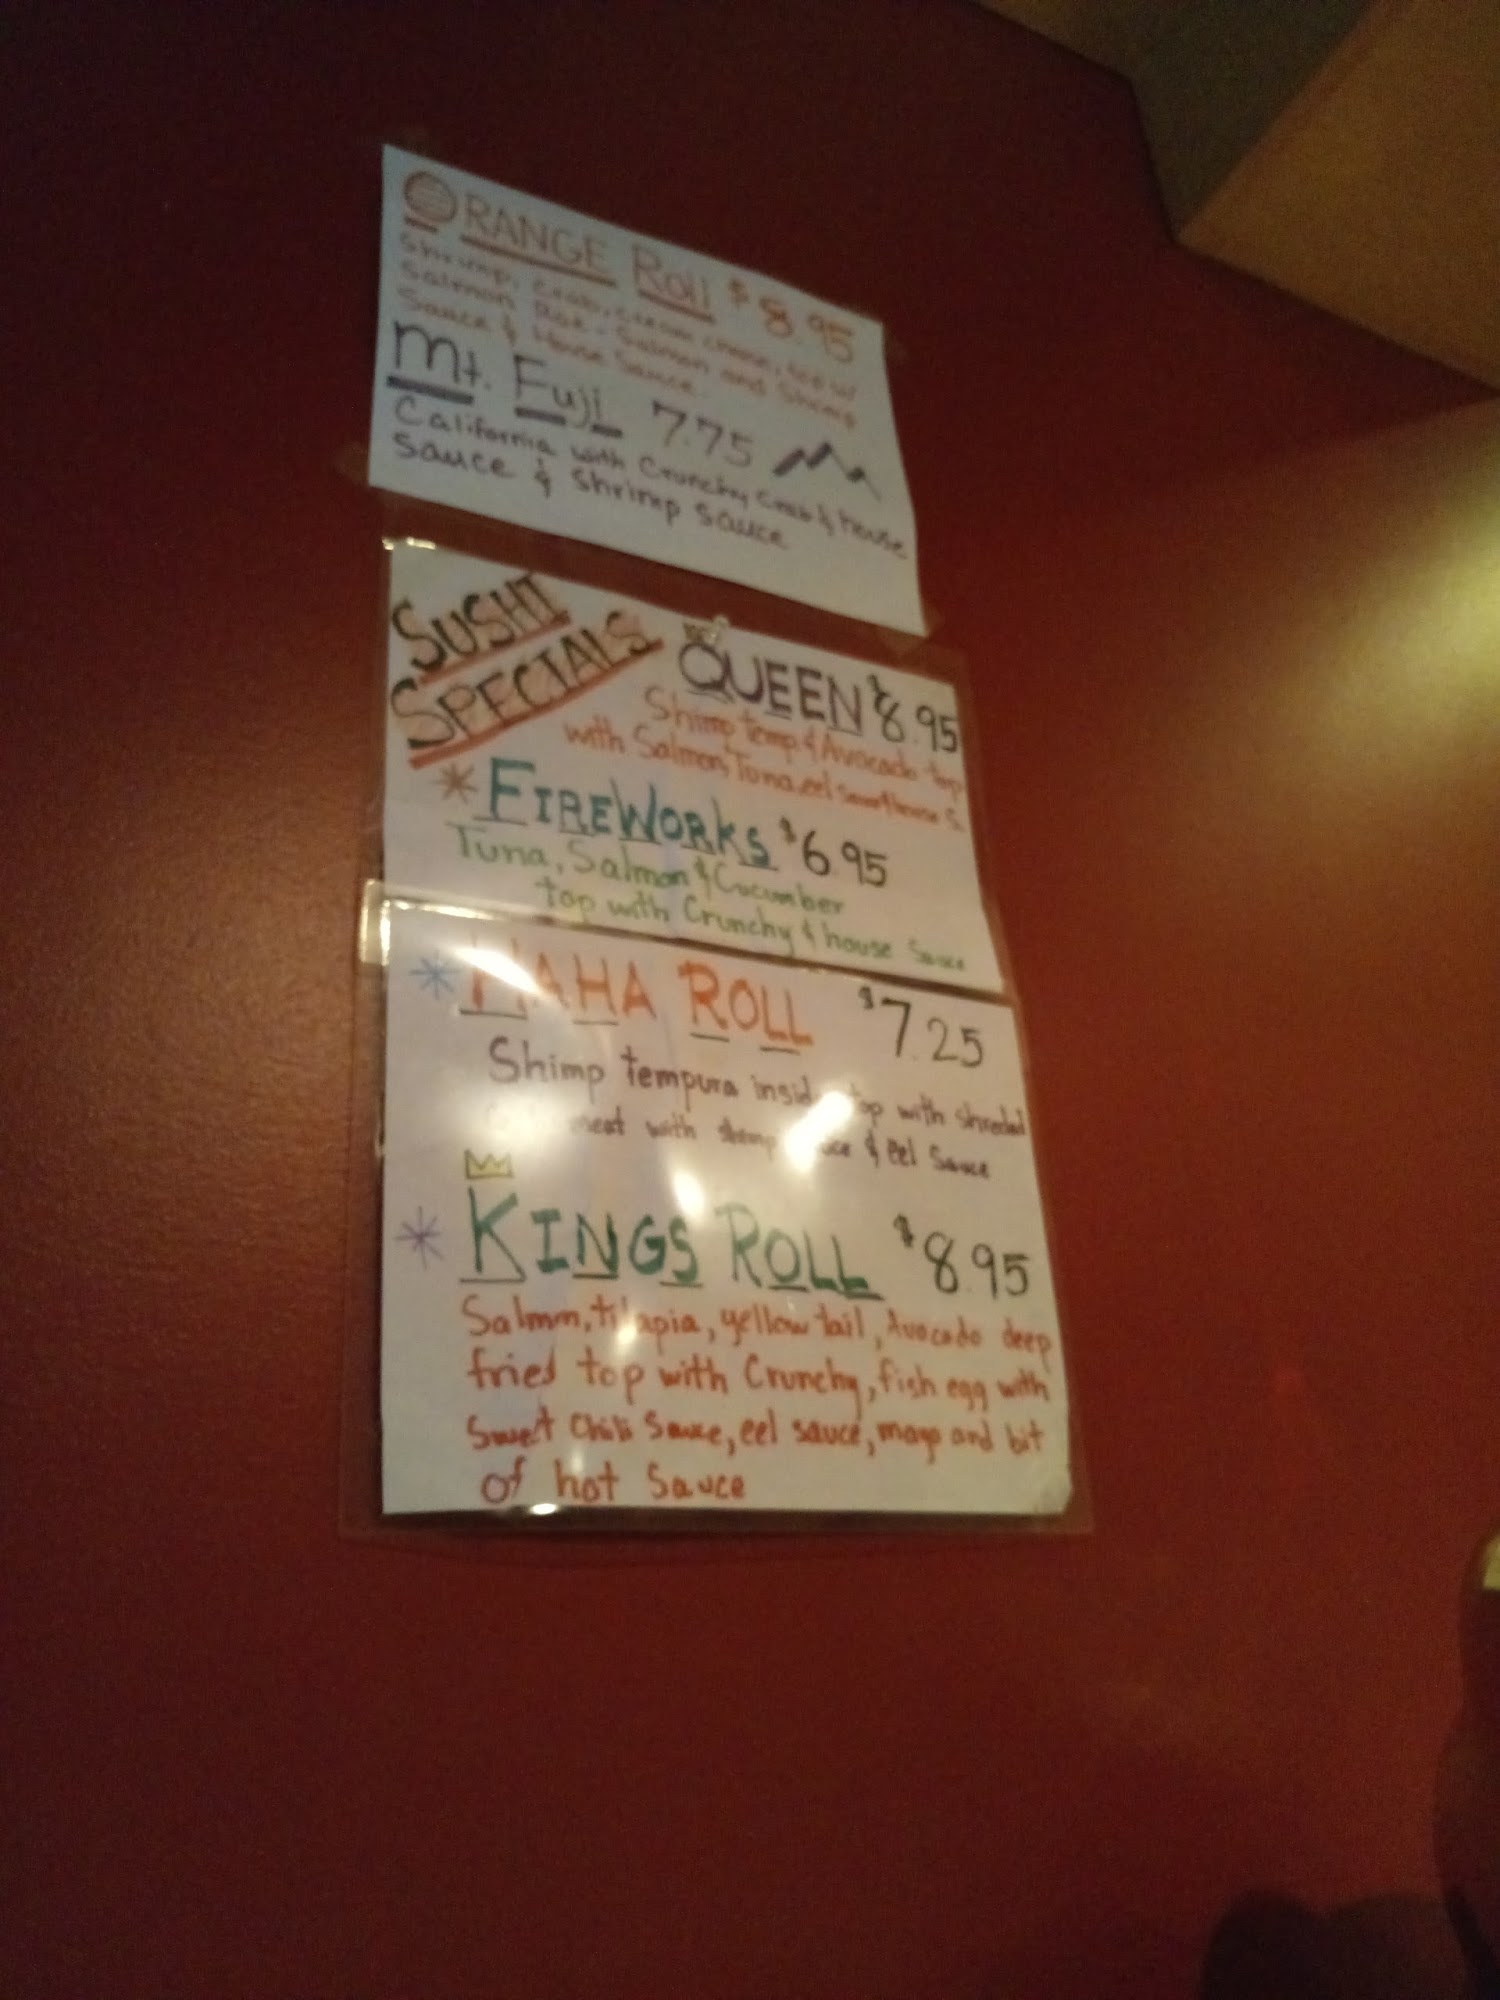 ORANGE Roll $8.95
Shrimp, Crab, Cream cheese, top w/
Salmon Roe - Salmon and Shrimp
Sauce & House Sauce.
Mt. Fuji 7.75
California with Crunchy Crab & house
Sauce & Shrimp Sauce
SUSHI
SPECIALS
QUEEN $8.95
Shimp temp & Avocado top
with Salmon, Tuna, eel sauce & house S.
FIREWORKS $6.95
Tuna, Salmon & Cucumber
top with Crunchy & house Sauce
HAHA ROLL $7.25
Shimp tempura inside top with shreded
meat with shimp sauce & eel Sauce
KINGS ROLL $8.95
Salmon, tilapia, yellow tail, Avocado deep
fried top with Crunchy, fish egg with
Sweet Chili Sauce, eel sauce, mayo and bit
of hot Sauce